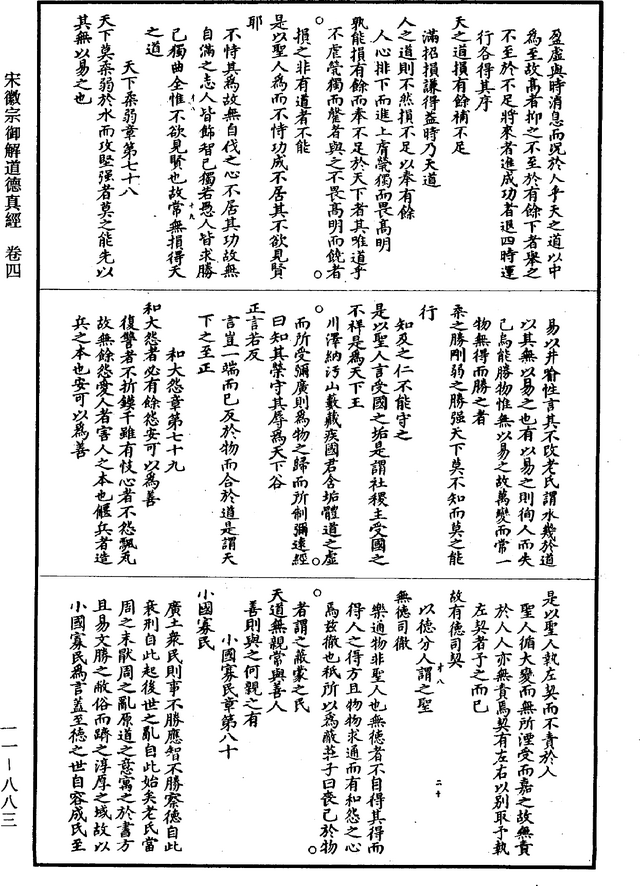 宋徽宗御解道德真經　卷四
盈虛與時消息而況於人乎天之道以中
為至故高者抑之不至於有餘下者舉之
不至於不足將來者進成功者退四時運
行各得其序
天之道損有餘補不足
滿招損謙得益時乃天道
人之道則不然損不足以奉有餘
人心排下而進上虐煢獨而畏高明
孰能損有餘而奉不足於天下者其唯道乎
不虐煢獨而罄者與之不畏高明而饒者
損之非有道者不能
是以聖人為而不恃功成不居其不欲見賢
耶
不恃其為故無自伐之心不居其功故無
自滿之志人皆飾智己獨若愚人皆求勝
己獨曲全惟不欲見賢也故常無損得天
之道
天下柔弱章第七十八
天下莫柔弱於水而攻堅强者莫之能先以
其無以易之也
易以井喻性言其不改老氏謂水幾於道
以其無以易之也有以易之則徇人而失
己烏能勝物惟無以易之故萬變而常一
物無得而勝之者
柔之勝剛弱之勝强天下莫不知而莫之能
行
知及之仁不能守之
是以聖人言受國之垢是謂社稷主受國之
不祥是為天下王
川澤納汙山藪藏疾國君含垢體道之虛
而所受彌廣則為物之歸而所制彌遠經
曰知其榮守其辱為天下谷
正言若反
言豈一端而已反於物而合於道是謂天
下之至正
和大怨章第七十九
和大怨者必有餘怨安可以為善
復讐者不折鏌干雖有忮心者不怨飄瓦
故無餘怨愛人者害人之本也偃兵者造
兵之本也安可以為善
是以聖人執左契而不責於人
聖人循大變而無所湮受而嘉之故無責
於人人亦無責焉契有左右以別取予執
左契者予之而已
故有德司契
以德分人謂之聖
無德司徹
樂通物非聖人也無德者不自得其得而
得人之得方且物物求通而有和怨之心
焉茲徹也秖所以為蔽莊子曰喪己於物
者謂之蔽蒙之民
天道無親常與善人
善則與之何親之有
小國寡民章第八十
小國寡民
廣土衆民則事不勝應智不勝察德自此
衰刑自此起後世之亂自此始矣老氏當
周之末厭周之亂原道之意寓之於書方
且易文勝之敝俗而躋之淳厚之域故以
小國寡民為言蓋至德之世自容成氏至
一一—八八三